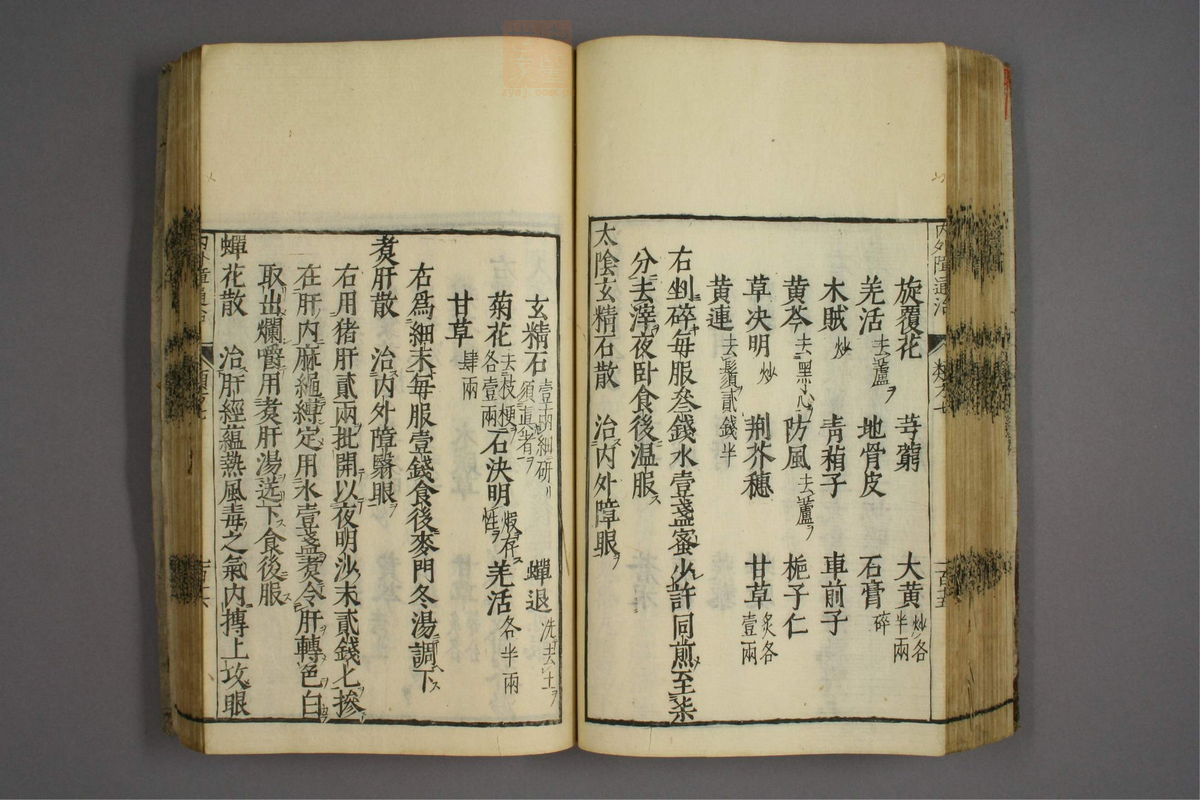 內外障通治
卷六七
一百五
旋覆花 芎藭 大黃炒各半兩
羌活去蘆 地骨皮 石膏碎
木賊炒 青葙子 車前子
黃芩去黑心 防風去蘆 梔子仁
草決明炒 荊芥穗 甘草炙各壹兩
黃連去鬚貳錢半
右剉碎每服叄錢水壹盞蜜少許同煎至柒
分去滓夜臥食後溫服
太陰玄精石散 治內外障眼
玄精石壹兩細研須真者 蟬退洗去土
菊花去枝梗各壹兩 石決明煆存性 羌活各半兩
甘草肆兩
右爲細末每服壹錢食後麥門冬湯調下
煑肝散 治內外障翳眼
右用猪肝貳兩批開以夜明沙末貳錢匕摻
在肝內麻繩縛定用水壹盞煑令肝轉色白
取出爛嚼用煑肝湯送下食後服
蟬花散 治肝經蘊熱風毒之氣內搏上攻眼